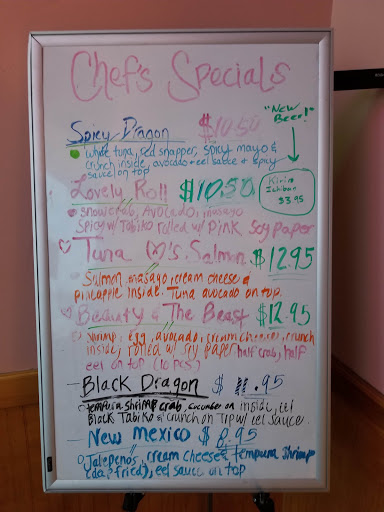 Chef's Specials
"New Beer!"
Spicy Dragon $10.50
white tuna, red snapper, spicy mayo &
crunch inside, avocado + eel sauce & spicy
sauce on top
Lovely Roll $10.50
Kirin
Ichiban
$3.95
snowcrab, Avocado, masago
Spicy w/ Tobiko rolled w/ Pink Soy Paper
Tuna ♡'s Salmon $12.95
Salmon, masago, cream cheese &
pineapple inside. Tuna avocado on top.
Beauty & The Beast $12.95
shrimp, egg, avocado, cream cheese, crunch
inside, rolled w/ soy paper half crab, half
eel on top (10 pcs)
Black Dragon $ 11.95
tempura shrimp crab, cucumber on inside, eel
Black Tabiko & crunch on Top w/ eel sauce
New Mexico $ 8.95
Jalepenos, cream cheese & tempura shrimp
(deep fried), eel sauce on top